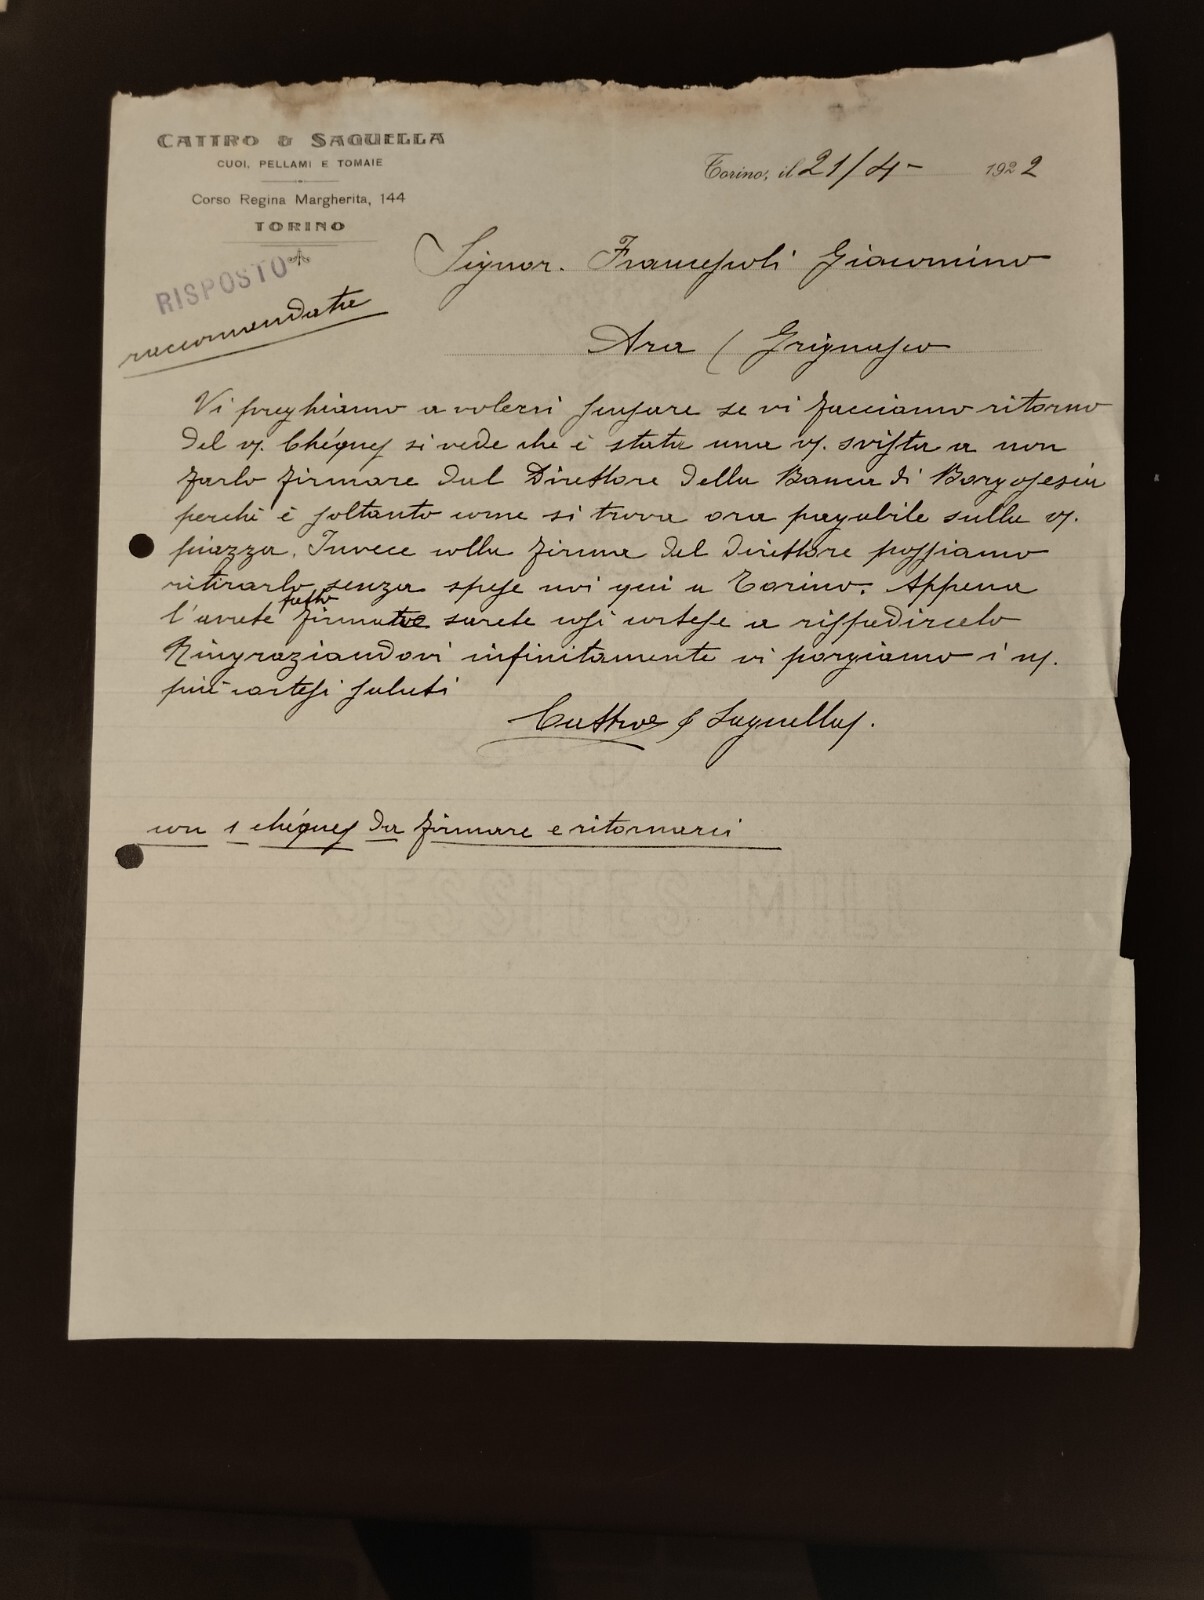 CATTRO & SAQUELLA
CUOI, PELLAMI E TOMAIE
Corso Regina Margherita, 144
TORINO
Torino, il 21/4- 1922
RISPOSTO
raccomandata
Signor. Francesoli Giacomino
Ara (Grignasco
Vi preghiamo a volersi scusare se vi facciamo ritorno
del vs. Chéques si vede che è stata una vs. svista a non
farlo firmare dal Direttore della Banca di Borgosesia
perchè è soltanto come si trova ora pagabile sulla vs.
piazza. Invece colla firma del direttore possiamo
ritirarlo senza spese noi qui a Torino. Appena
l'avrete fatto firmare sarete così cortese a rispedircelo
Ringraziandovi infinitamente vi porgiamo i ns.
più cortesi saluti
Cattro & Saquella.
con 1 chéques da firmare e ritornarci
SESSITES MILL